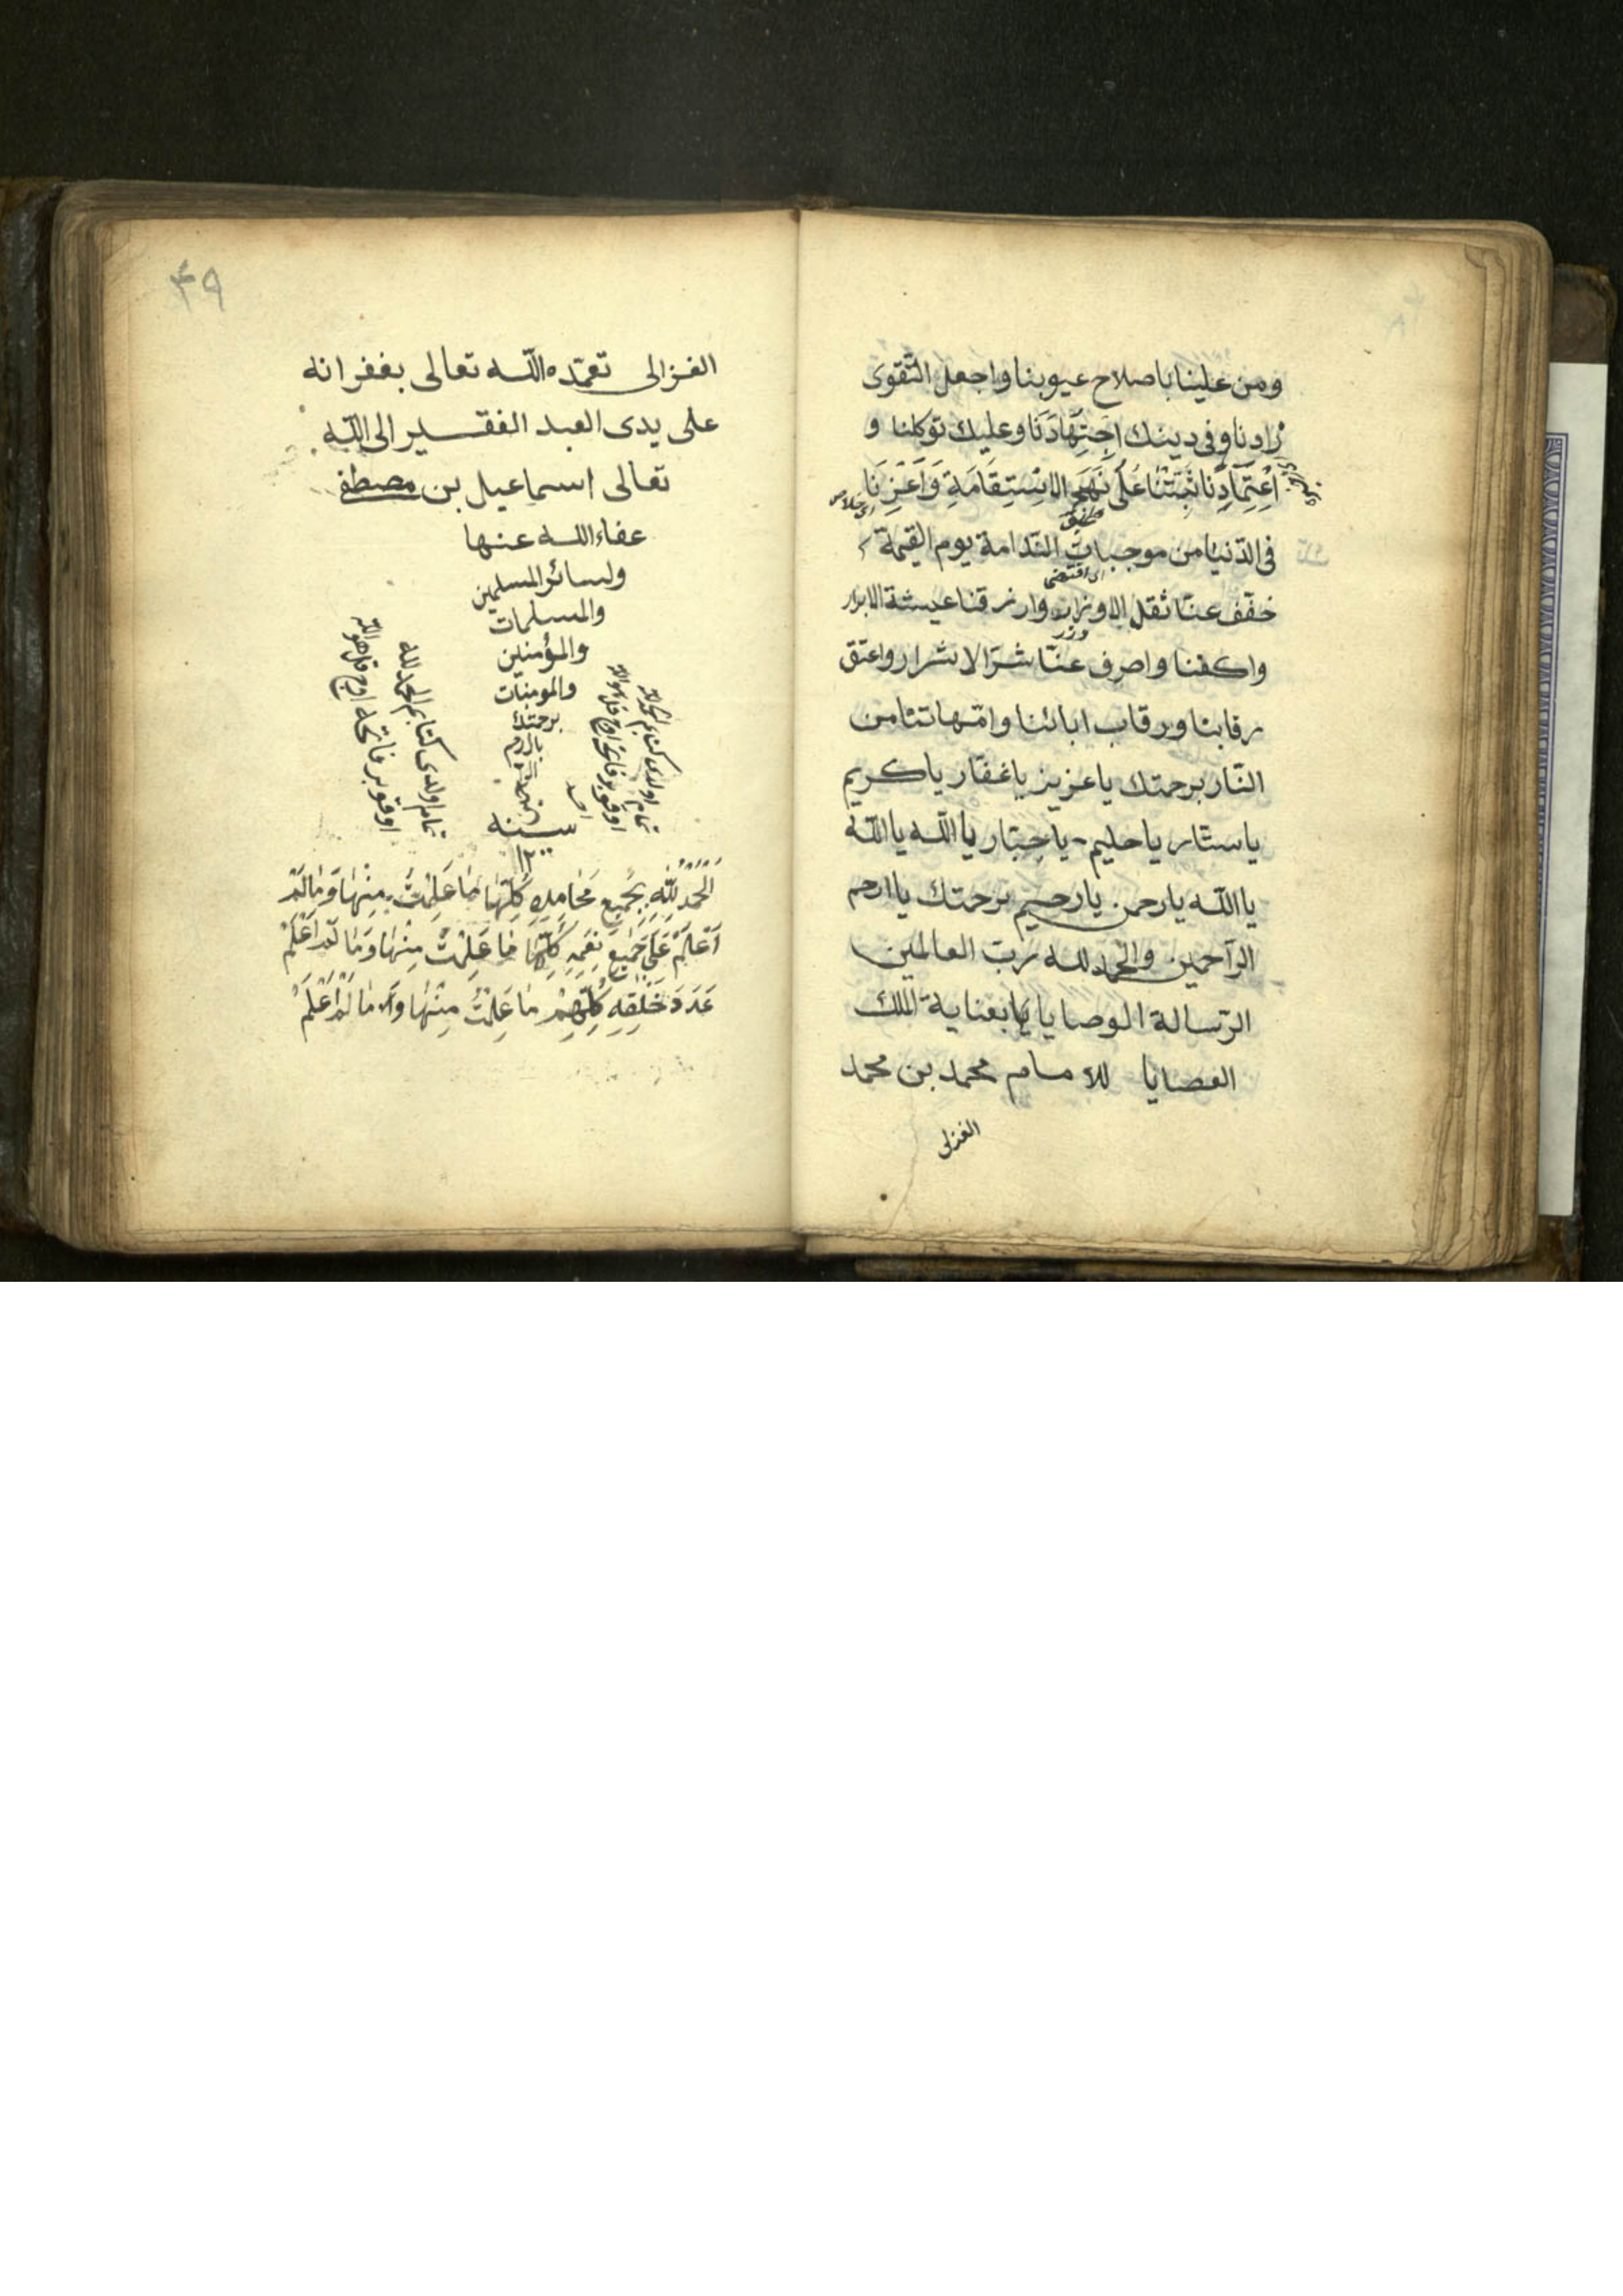 ومن علينا باصلاح عيوبنا واجعل التقوى
زادنا وفى دينك اِجْتِهَادَنَا وعليك توكلنا و
اِعْتِمَادَنَا ثَبِّتْنَا عَلَى نَهْجِ الاِسْتِقَامَةِ وَاَعِزْنَا
طريق
فى الدّنيا من موجبات النّدامة يوم القيمة
اى اقتضى
خفّف عنّا ثقل الاوزار وارزقنا عيشة الابرار
وزر
واكفنا واصرف عنّا شرّ الاشرار واعتق
رقابنا ورقاب ابائنا وامّهاتنا من
النّار برحمتك يا عزيز يا غفّار يا كريم
يا ستّار يا حليم يا جبّار يا اللّه يا اللّه
يا اللّه يا رحمن يا رحيم برحمتك يا ارحم
الرّاحمين والحمد للّه ربّ العالمين
الرّسالة الوصايا بعناية الملك
العصايا للامام محمد بن محمد
الغزلى
٤٩
الغزالى تغمّده اللّه تعالى بغفرانه
على يدى العبد الفقير الى اللّه
تعالى اسماعيل بن مصطفى
عفاء اللّه عنها
ولسائر المسلمين
والمسلمات
والمؤمنين
والمومنات
برحمتك
سنه
١٢٠٠
تمام اولدى كتابم الحمد للّه
اوقو بر فاتحه اوچ قل هو اللّه
اَلْحَمْدُ لِلّٰهِ بِجَمِيعِ مَحَامِدِهِ كُلِّهَا مَا عَلِمْتُ مِنْهَا وَمَا لَمْ
اَعْلَمْ عَلَى جَمِيعِ نِعَمِهِ كُلِّهَا مَا عَلِمْتُ مِنْهَا وَمَا لَمْ اَعْلَمْ
عَدَدَ خَلْقِهِ كُلِّهِمْ مَا عَلِمْتُ مِنْهَا وَمَا لَمْ اَعْلَمْ